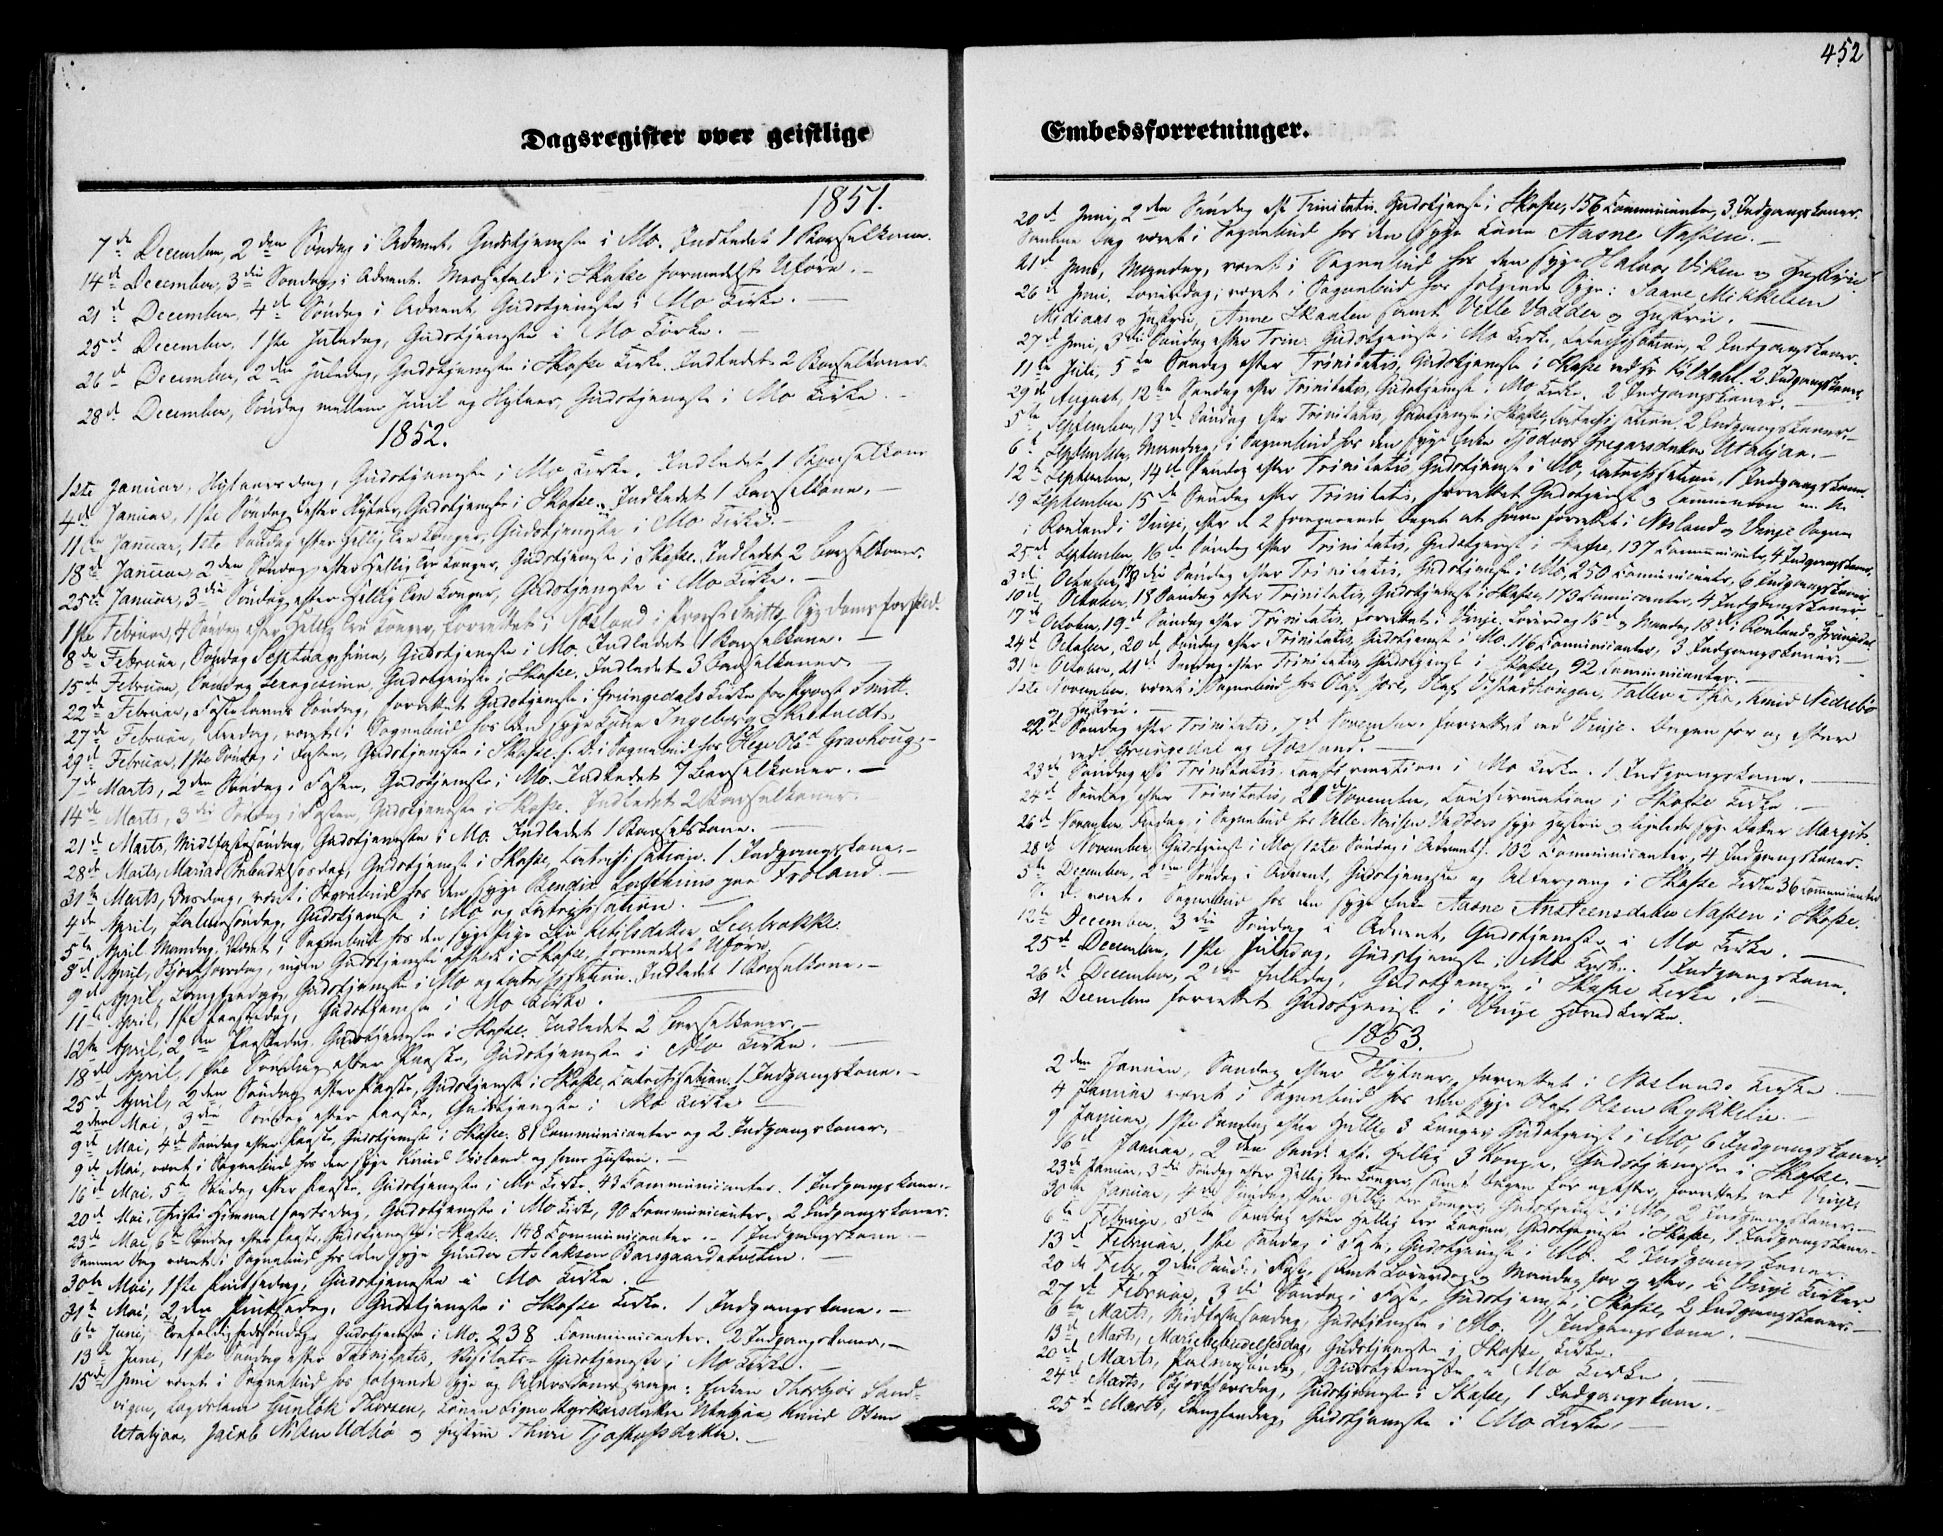 452
Dagsregister over geistlige Embedsforretninger.
1851.
7de December, 2den Søndag i Advent, Gudstjeneste i Mo. Indledet 1 Barselkone.
14de December, 3die Søndag i Advent. Messefald i Skafse formedelst Uføre.
21de December, 4de Søndag i Advent, Gudstjeneste i Mo Kirke.
25de December, 1ste Juledag, Gudstjeneste i Mo Kirke.
26de December, 2den Juledag, Gudstjeneste i Skafse Kirke. Indledet 2 Barselkoner.
28de December, Søndag mellem Juul og Nytaar, Gudstjeneste i Mo Kirke.
1852.
1ste Januar, Nytaarsdag, Gudstjeneste i Mo Kirke. Indledet 1 Barselkone
4de Januar, 1ste Søndag efter Nytaar, Gudstjeneste i Skafse. Indledet 1 Barselkone.
11te Januar, 1ste Søndag efter Hellig tre Konger, Gudstjeneste i Mo Kirke.
18de Januar, 2den Søndag efter Hellig tre Konger, Gudstjeneste i Skafse. Indledet 2 Barselkoner.
25de Januar, 3die Søndag efter Hellig tre Konger, Gudstjeneste i Mo Kirke.
1ste Februar, 4 Søndag efter Hellig tre Konger, forrettet i Næsland i Provst Smitts Sygdoms forfald.
8de Februar, Søndag Septuagesima, Gudstjeneste i Mo. Indledet 1 Barselkone.
15de Februar, Søndag Sexagesima, Gudstjeneste i Skafse. Indledet 3 Barselkoner
22de Februar, Fastelavns Søndag, forrettet Gudstjeneste i Grungedals Kirke for Provst Smitt.
27de Februar, Fredag, været i Sognebud hos den syge Kone Ingeborg Skretvedt.
29de Februar, 1ste Søndag i Fasten, Gudstjeneste i Skafse. s. D. i Sognebud hos Hege Olsd. Gravhoug.
7de Marts, 2den Søndag i Fasten, Gudstjeneste i Mo. Indledet 7 Barselkoner.
14de Marts, 3die Søndag i Fasten, Gudstjeneste i Skafse. Indledet 2 Barselkoner.
21de Marts, Midfastesøndag, Gudstjeneste i Mo. Indledet 1 Barselkone.
28de Marts, Mariæ Bebudelsesdag, Gudstjeneste i Skafse, Katechisation. 1 Indgangskone.
31te Marts, Onsdag, været i Sognebud hos den syge Bendix paa Frøland.
4de April, Palmesøndag, Gudstjeneste i Mo og Katechisation.
5te April Mandag. Været i Sognebud hos den syge Pige Liv Ketilsdatter
8de April, Skjærthorsdag, ingen Gudstjeneste afholdt i Skafse, formedelst Uføre.
9de April, Langfredag, Gudstjeneste i Mo og Katechisation. Indledet 1 Barselkone.
11te April, 1ste Paaskedag, Gudstjeneste i Mo Kirke.
12te April, 2den Paaskedag. Gudstjeneste i Skafse. Indledet 2 Barselkoner.
18de April, 1ste Søndag efter Paaske, Gudstjeneste i Mo Kirke.
25de April, 2den Søndag efter Paaske, Gudstjeneste i Skafse, Katechisation. 1 Indgangskone.
2den Mai, 3die Søndag efter Paaske, Gudstjeneste i Mo Kirke
9de Mai, 4de Søndag efter Paaske, Gudstjeneste i Skafse. 81 Communicanter og 2 Indgangskoner.
9de Mai, været i Sognebud hos den syge Knud og hans Hustru.
16de Mai, 5te Søndag efter Paaske, Gudstjeneste i Mo Kirke. 43 Communicanter. 1 Indgangskone.
20de Mai, Christi Himmelfartsdag, Gudstjeneste i Mo Kirke, 90 Communicanter. 2 Indgangskoner.
23de Mai, 6te Søndag efter Paaske, Gudstjeneste i Skafse. 148 Communicanter. 1 Indgangskone.
Samme Dag været i Sognebud hos den syge Gunder Aslaksen
30te Mai, 1ste Pintsedag, Gudstjeneste i Mo Kirke.
31te Mai, 2den Pintsedag, Gudstjeneste i Skafse Kirke. 1 Indgangskone.
6te Juni, Trefoldighedssøndag. Gudstjeneste i Mo. 238 Communicanter. 2 Indgangskoner.
13de Juni, 1ste Søndag efter Trinitatis, Visitats-Gudstjeneste i Mo Kirke.
15de Juni været i Sognebud hos følgende syge og : Enken Thorbjør Sand-
vigen, Gunlek Thorsen, Konen Signe Utabjaa Knud Olsen
Utabjaa, Jacob Nilsen Udbø og Hustru Thuri
20de Juni, 2den Søndag eft. Trinitatis. Gudstjeneste i Skafse, 156 Communicanter, 3 Indgangskoner.
Samme Dag været i Sognebud hos den syge Kone Aasne Næsten.
21de Juni, Mandag, været i Sognebud hos den syge Halvor Viken og Hustru
26de Juni, Løverdag, været i Sognebud hos følgende Syge: Saave Mikkelsen
Midiaas og Hustru, Anne Skaalen samt Velle Vadder og Hustru.
27de Juni, 3die Søndag efter Trin. Gudstjeneste i Mo Kirke, Katechisation, 2 Indgangskoner.
11te Juli, 5te Søndag efter Trinitatis, Gudstjeneste i Skafse ved Hr Kildahl. 2 Indgangskoner.
29de August, 12te Søndag efter Trinitatis, Gudstjeneste i Mo Kirke. 2 Indgangskoner.
5te September, 13de Søndag efter Trinitatis, Gudstjeneste i Skafse, Katechisation. 2 Indgangskoner.
6te September, Mandag, i Sognebud hos den syge Enke Gregarsdatter Utabjaa.
12te September, 14de Søndag efter Trinitatis, Gudstjeneste i Mo, Katechisation, 1 Indgangskone.
19 September, 15de Søndag efter Trinitatis, forrettet Gudstjeneste og Communion
i Rauland i Vinje, efter de 2 foregaaende Dage at have forrettet i Næsland og Vinje Sogne
25de September, 16de Søndag efter Trinitatis, Gudstjeneste i Skafse, 137 Communicanter, 4 Indgangskoner.
3die October, 17de Søndag efter Trinitatis, Gudstjeneste i Mo, 250 Communicanter, 6 Indgangskoner
10de October, 18 Søndag efter Trinitatis, Gudstjeneste i Skafse, 173 Communicanter, 4 Indgangskoner.
17de October, 19de Søndag efter Trinitatis, forrettet i Vinje, Løverdag 16de og Mandag 18de i Rauland og Grungedal
24de October, 20de Søndag efter Trinitatis, Gudstjeneste i Mo. 116 Communicanter, 3 Indgangskoner.
31te October, 21de Søndag efter Trinitatis, Gudstjeneste i Skafse, 92 Communicanter.
1ste November, været i Sognebud hos Olaf Olaf Knud Nedrebø
og Hustru.
22de Søndag efter Trinitatis, 7de November, forrettet ved Vinje. Dagen før og efter
ved Grungedal og Næsland.
23de Søndag eft. Trinitatis, Confirmation i Mo Kirke. 1 Indgangskone.
24de Søndag efter Trinitatis, 21de November, Confirmation i Skafse Kirke.
26de November, Fredag, i Sognebud hos Velle Vadders syge Hustru og syge Datter Margit.
28de November, Gudstjeneste i Mo (1ste Søndag i Advent). 102 Communicanter, 4 Indgangskoner.
5te December, 2den Søndag i Advent, Gudstjeneste og Altergang i Skafse Kirke 36 Communicanter
s. d. været i Sognebud hos den syge Enke Aasne Ansteensdatter Næsten i Skafse.
12te December, 3die Søndag i Advent, Gudstjeneste i Mo Kirke.
25de December, 1ste Juledag, Gudstjeneste i Mo Kirke. 1 Indgangskone.
26de December, 2den Juledag, Gudstjeneste i Skafse Kirke.
31 December forrettet Gudstjeneste i Vinje Hovedkirke.
1853.
2den Januar, Søndag efter Nytaar, forrettet i Næslands Kirke
4 Januar været i Sognebud hos den syge Olaf Olsen Rykkelie.
9 Januar, 1ste Søndag efter Hellig 3 Konger, Gudstjeneste i Mo, 6 Indgangskoner.
16de Januar, 2den Sønd. eft. Hellig 3 Konger, Gudstjeneste i Skafse.
23de Januar, 3die Søndag efter Hellig tre Konger, samt Dagen før og efter, forrettet ved Vinje.
30te Januar, 4de Søndag efter Hellig tre Konger, Gudstjeneste i Mo, 2 Indgangskoner.
6te Februar, 5te Søndag efter Hellig tre Konger, Gudstjeneste i Skafse, 1 Indgangskone.
13de Februar, 1ste Søndag i Faste, Gudstjeneste i Mo. 2 Indgangskoner.
20de Febr. 2den Sønd. i Faste, samt Løverdag og Mandag før og efter, i Vinje Kirker
27de Februar, 3die Søndag i Faste, Gudstjeneste i Skafse, 2 Indgangskoner.
6te Marts, Midfastesøndag, Gudstjeneste i Mo. 1 Indgangskone.
13de Marts, Mariæ Bebudelsesdag, Gudstjeneste i Skafse Kirke.
20de Marts, Palmesøndag, Gudstjeneste i Mo Kirke
24de Marts, Skjærthorsdag, Gudstjeneste i Skafse, 1 Indgangskone.
25de Marts, Langfredag, Gudstjeneste i Mo Kirke.